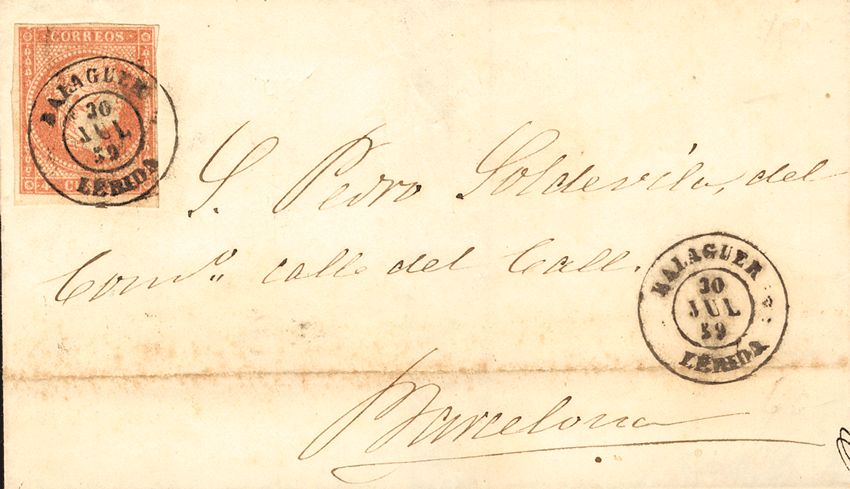 CORREOS
BALAGUER
30
JUL
59
LERIDA
S. Pedro Soldevila, del
Comº. calle del Call.
BALAGUER
30
JUL
59
LERIDA
Barcelona